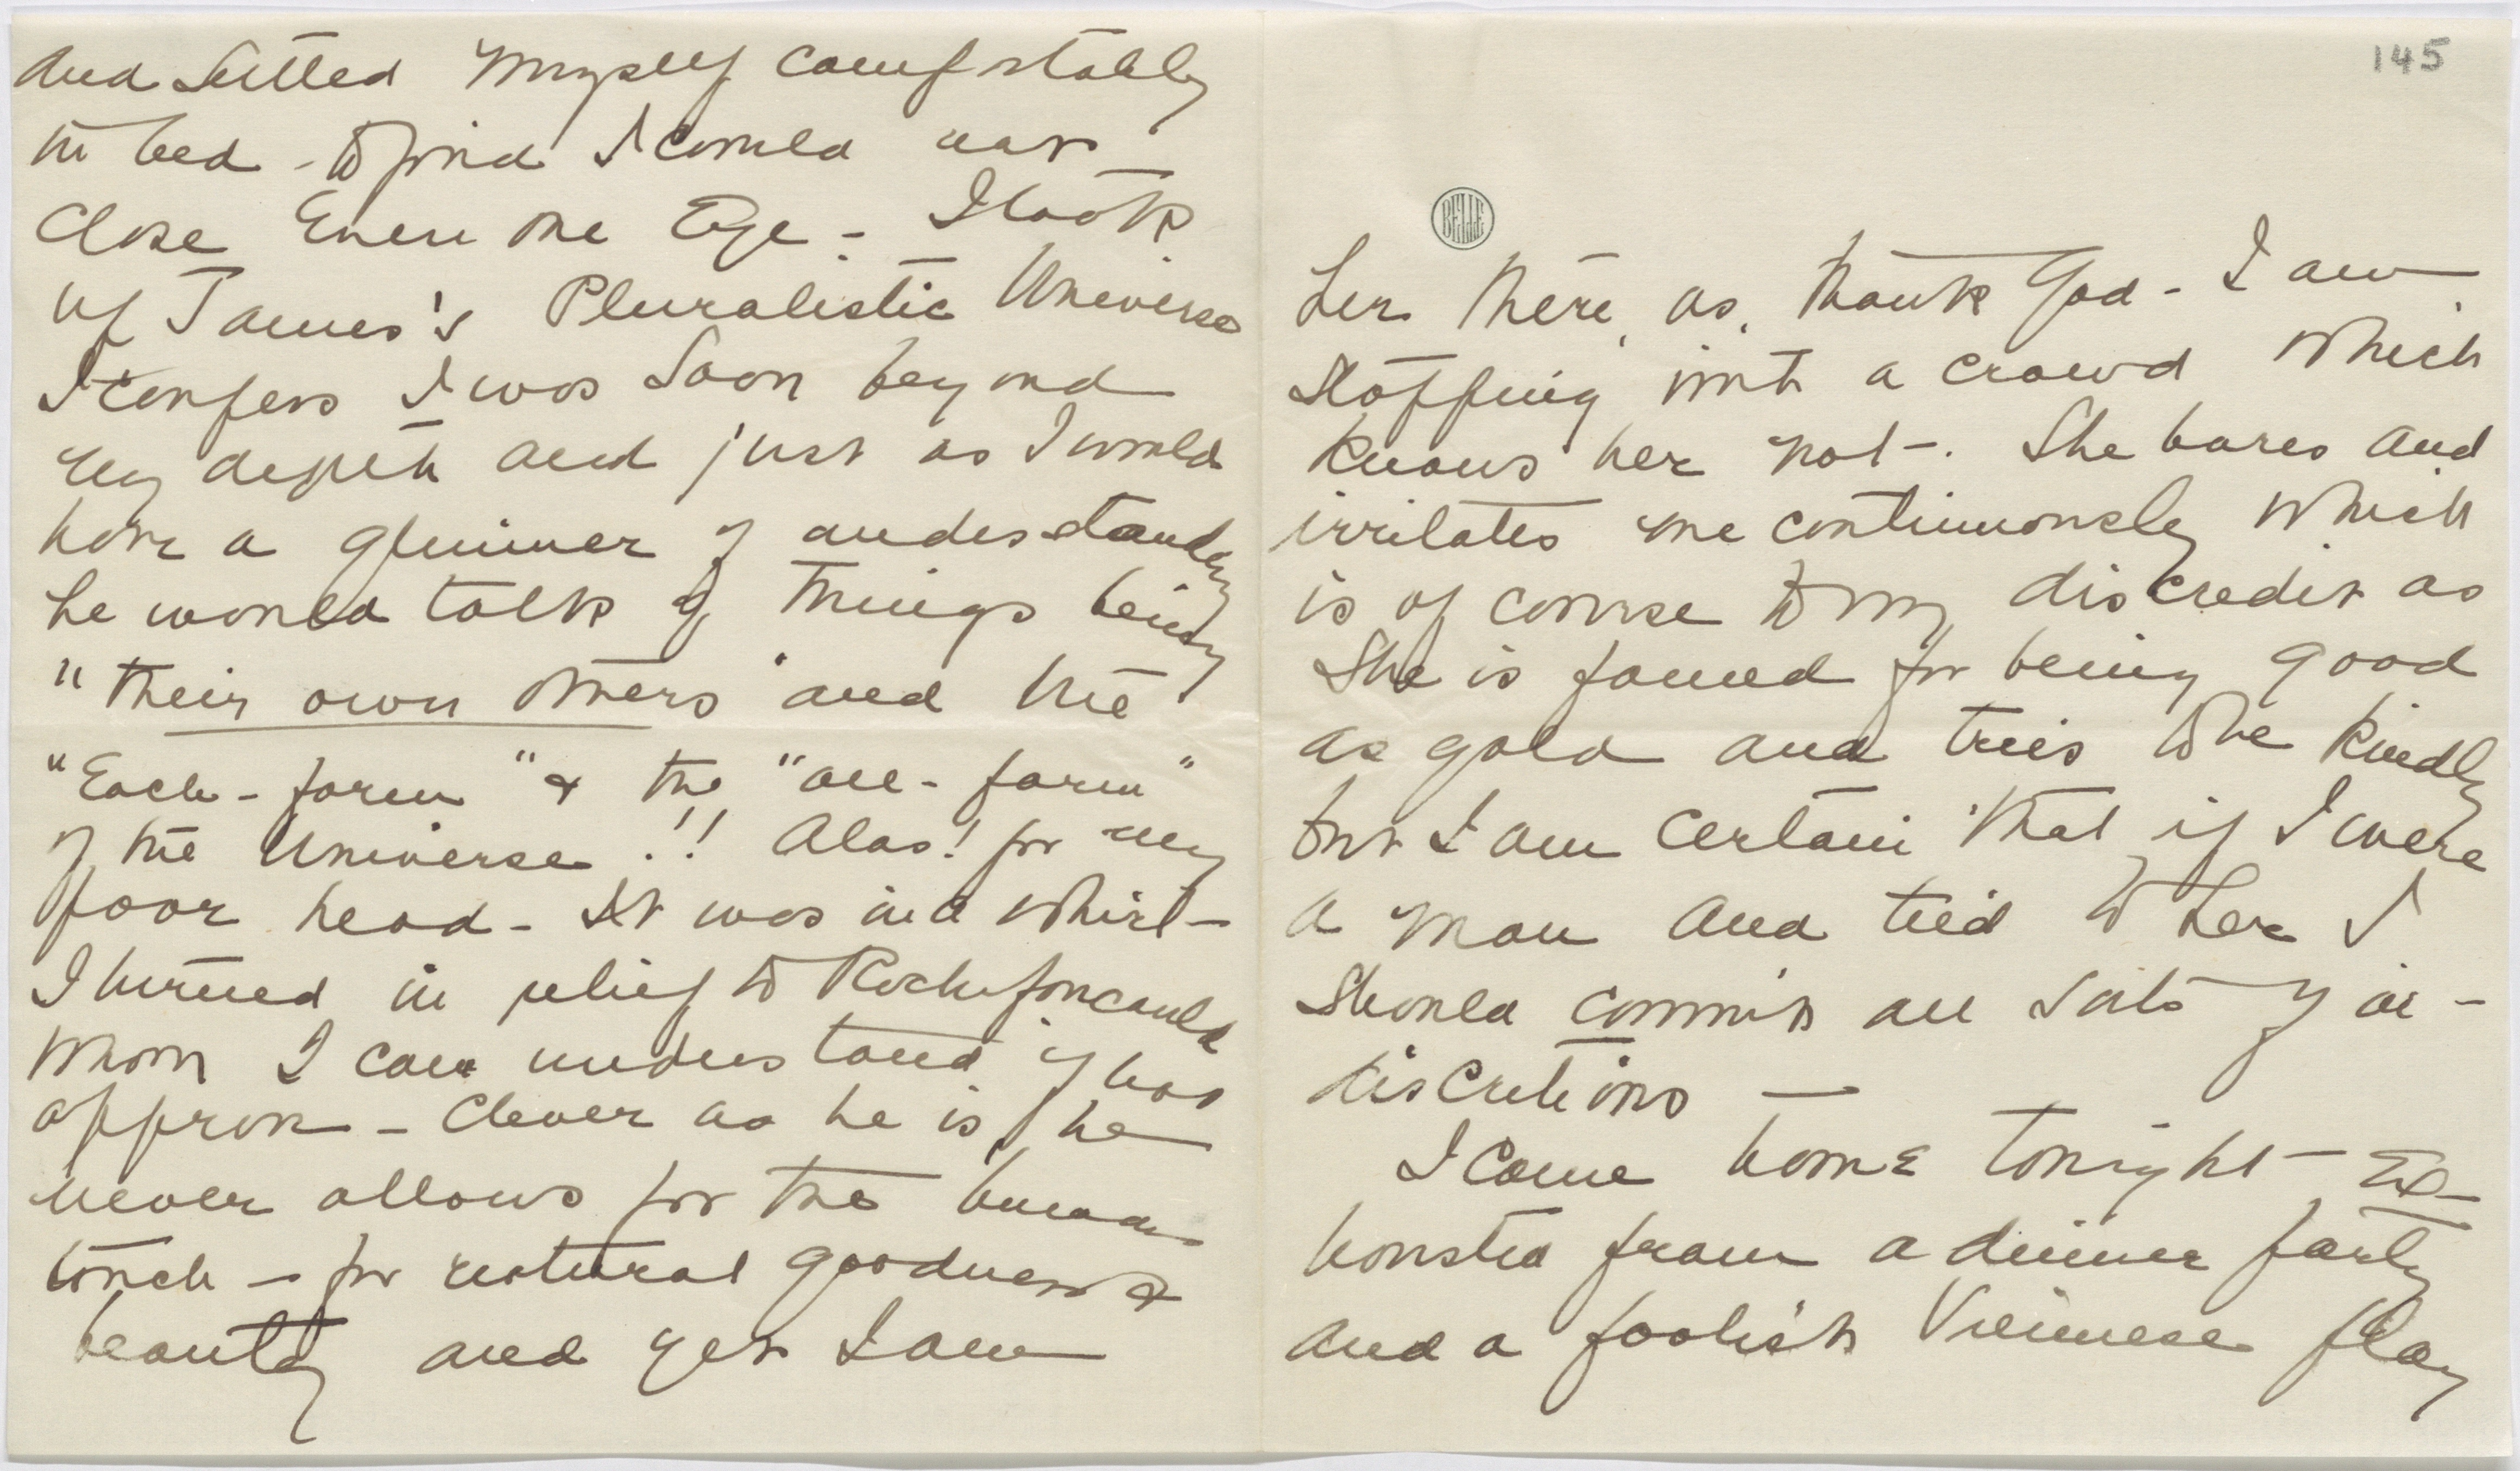 and settled myself comfortably
in bed - to find I could not
close even one Eye - I took
up James's Pluralistic Universe
I confess I was soon beyond
my depth and just as I would
have a glimmer of understanding
he would talk of things being
"their own others" and the
"Each-form" & the "all-form"
of the Universe!! Alas! for my
poor head - It was in a whirl -
I turned in relief to Rochefoucauld
whom I can understand if not
approve - Clever as he is, he
never allows for the human
touch - for natural goodness &
beauty and yet I am
145
BELLE
her there, as, thank God - I am
stopping with a crowd which
knows her not -. She bores and
irritates me continuously which
is of course to my discredit as
She is famed for being good
as gold and tries to be kindly
but I am certain that if I were
a man and tied to her I
should commit all sorts of in-
discretions —
I came home tonight - Ex-
hausted from a dinner party
and a foolish Viennese play